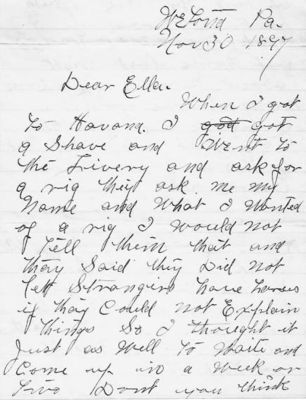 Pa.
Nov 30 1897
Dear Ella.
When I got
to Havana. I got got
a Shave and Went to
the Livery and ask for
a rig they ask me my
Name and What I Wanted
of a rig I Would not
Tell them that and
they Said they Did not
let Strangers have horses
if they Could not Explain
things So I thought it
Just as Well To Waite and
Come up in a Week or
two Dont you think